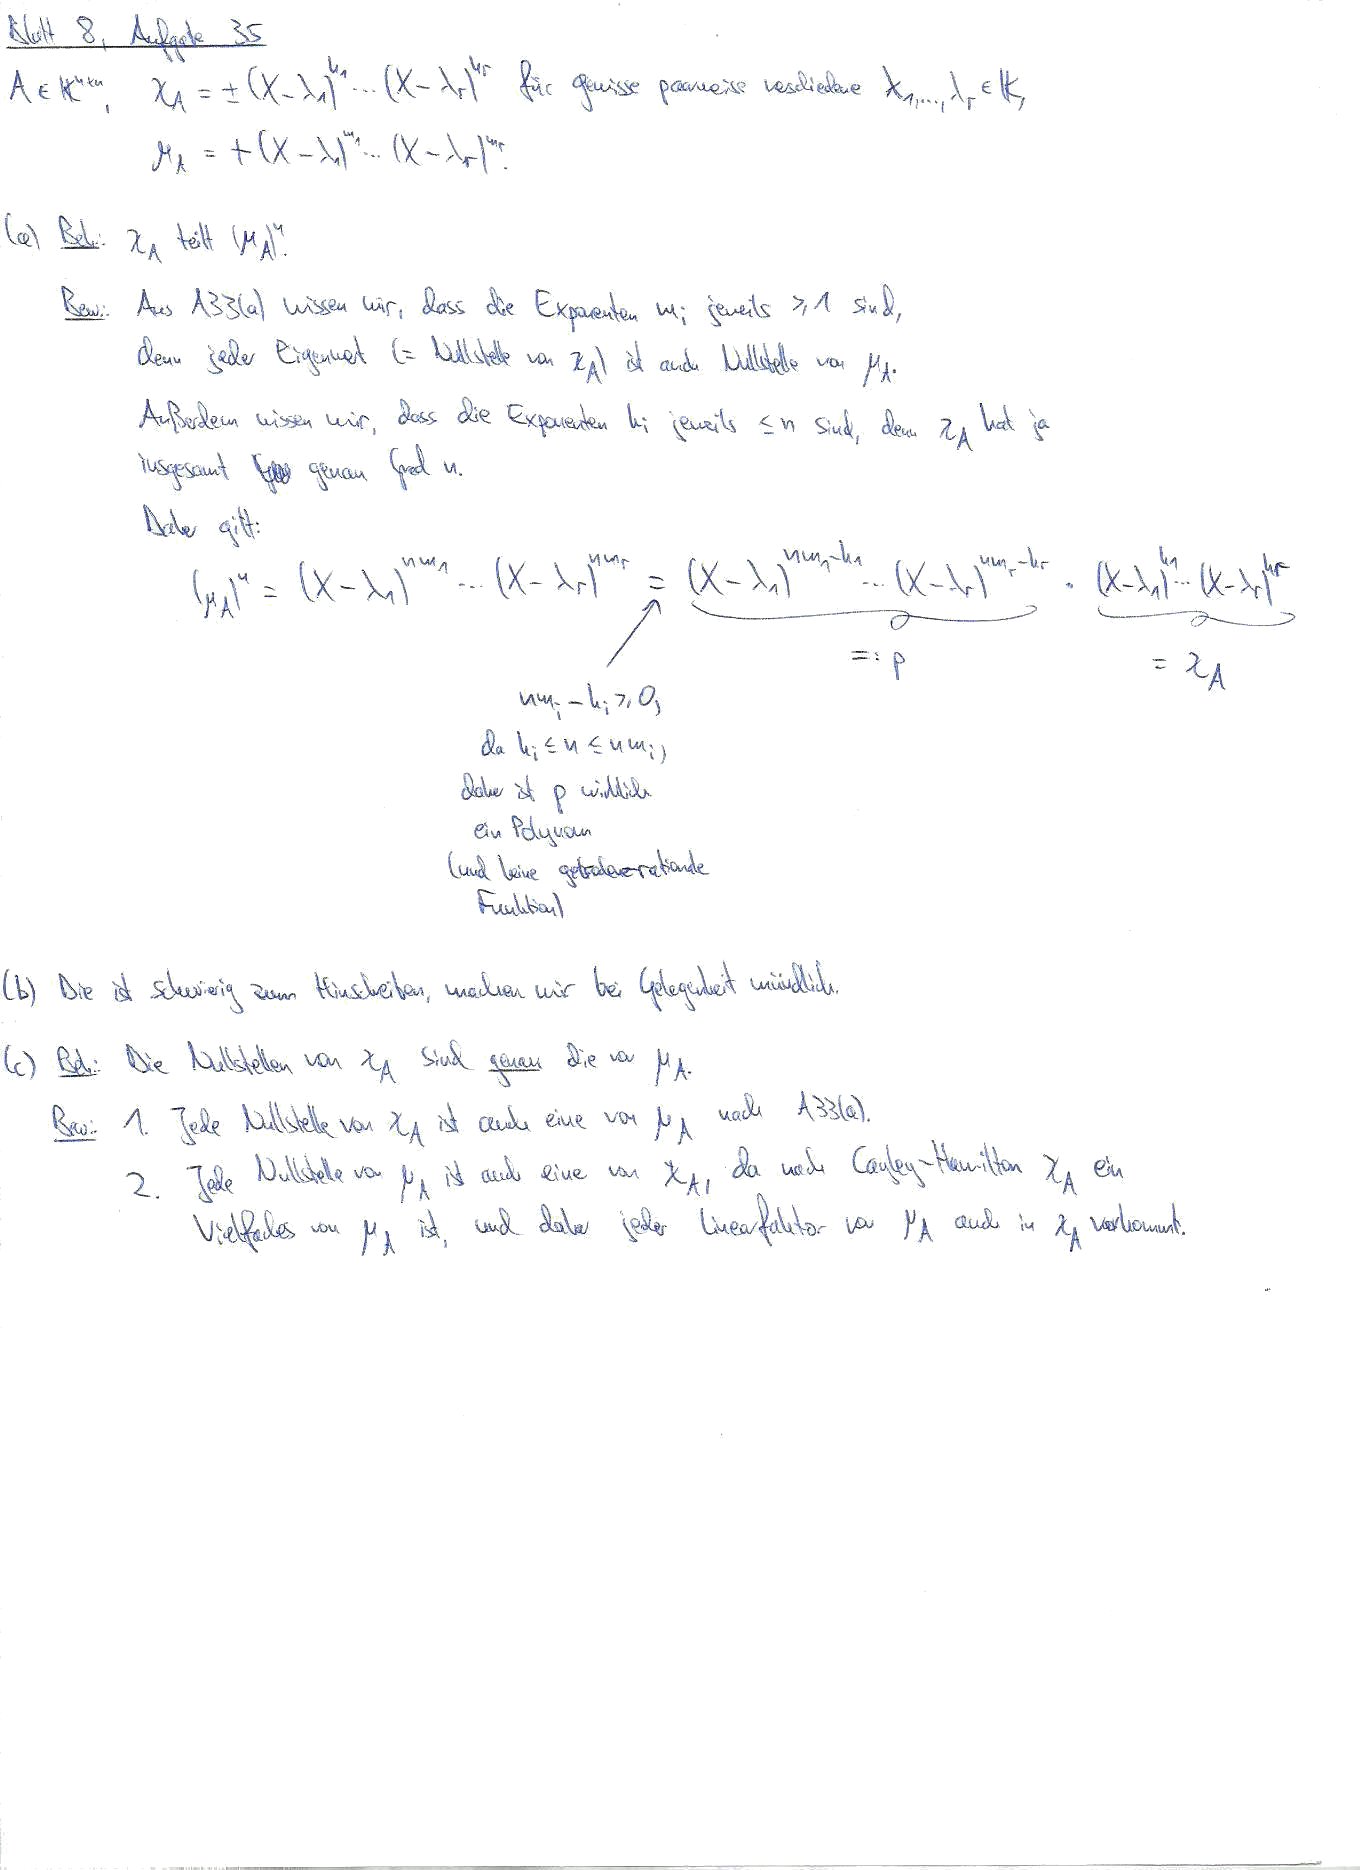 Blatt 8, Aufgabe 35
A ∈ K^{n×n}, χ_A = ±(X−λ_1)^{k_1} ⋯ (X−λ_r)^{k_r} für gewisse paarweise verschiedene λ_1, ..., λ_r ∈ K,
μ_A = +(X−λ_1)^{m_1} ⋯ (X−λ_r)^{m_r}.
(a) Beh.: χ_A teilt (μ_A)^n.
Bew.: Aus A33(a) wissen wir, dass die Exponenten m_i jeweils ≥ 1 sind,
denn jeder Eigenwert (= Nullstelle von χ_A) ist auch Nullstelle von μ_A.
Außerdem wissen wir, dass die Exponenten k_i jeweils ≤ n sind, denn χ_A hat ja
insgesamt genau Grad n.
Daher gilt:
(μ_A)^n = (X−λ_1)^{nm_1} ⋯ (X−λ_r)^{nm_r} = (X−λ_1)^{nm_1−k_1} ⋯ (X−λ_r)^{nm_r−k_r} · (X−λ_1)^{k_1} ⋯ (X−λ_r)^{k_r}
=: p = χ_A
nm_i − k_i ≥ 0,
da k_i ≤ n ≤ nm_i,
daher ist p wirklich
ein Polynom
(und keine rationale
Funktion)
(b) Die ist schwierig zum Hinschreiben, machen wir bei Gelegenheit mündlich.
(c) Beh.: Die Nullstellen von χ_A sind genau die von μ_A.
Bew.: 1. Jede Nullstelle von χ_A ist auch eine von μ_A nach A33(a).
2. Jede Nullstelle von μ_A ist auch eine von χ_A, da nach Cayley-Hamilton χ_A ein
Vielfaches von μ_A ist, und daher jeder Linearfaktor von μ_A auch in χ_A vorkommt.